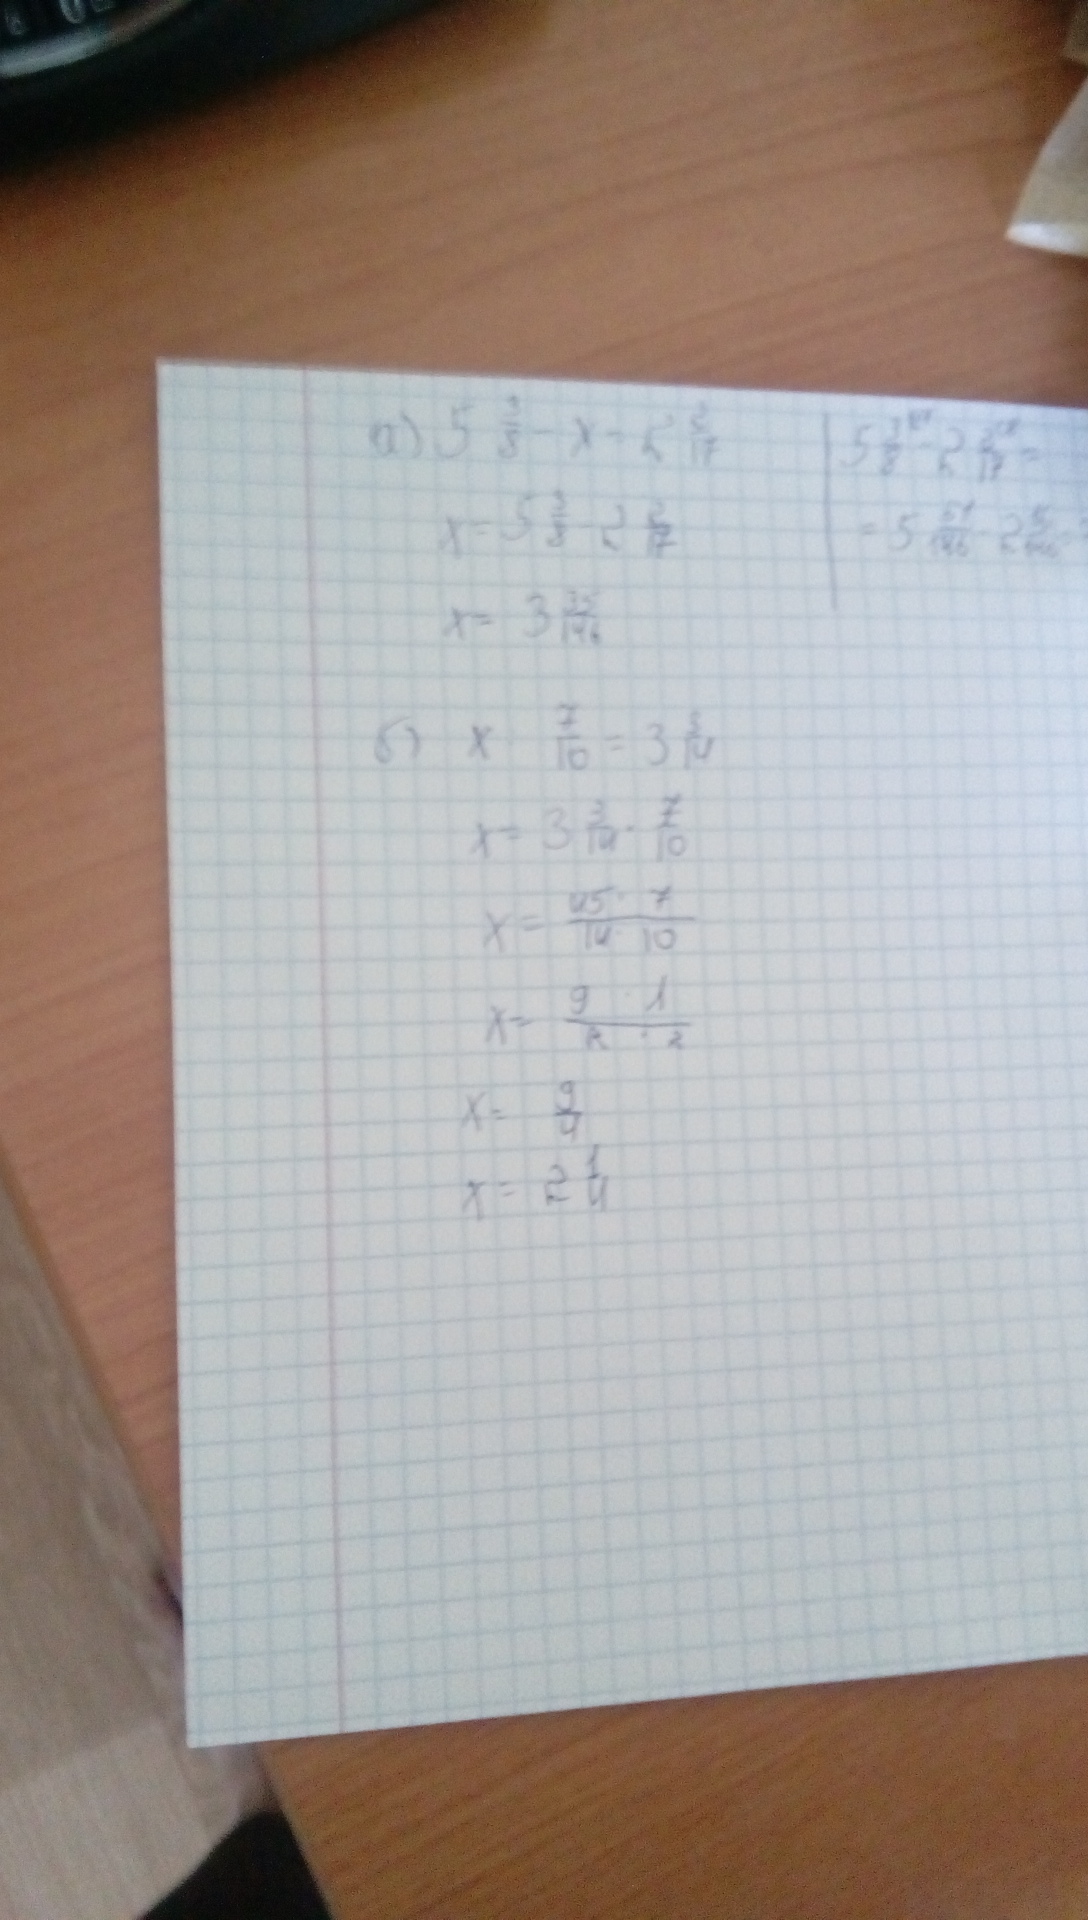 а) 5 3/8 - x = 2 2/17
x = 5 3/8 - 2 2/17
x = 3 35/146
5 3/8 - 2 2/17 =
= 5 51/146 - 2 16/146
б) x : 7/10 = 3 3/14
x = 3 3/14 · 7/10
x = 45 · 7 / 14 · 10
x = 9 · 1 / 2 · 2
x = 9/4
x = 2 1/4